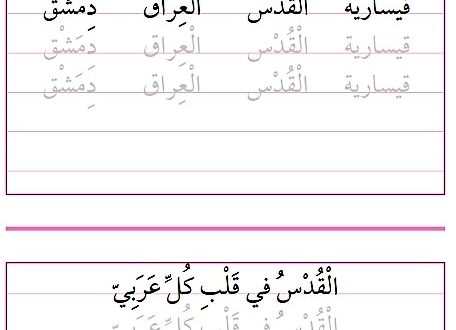 قيسارية الْقُدْس الْعِراق دِمَشْق
قيسارية الْقُدْس الْعِراق دِمَشْق
قيسارية الْقُدْس الْعِراق دِمَشْق
الْقُدْسُ في قَلْبِ كُلِّ عَرَبِيّ
الْقُدْسُ في قَلْبِ كُلِّ عَرَبِيّ